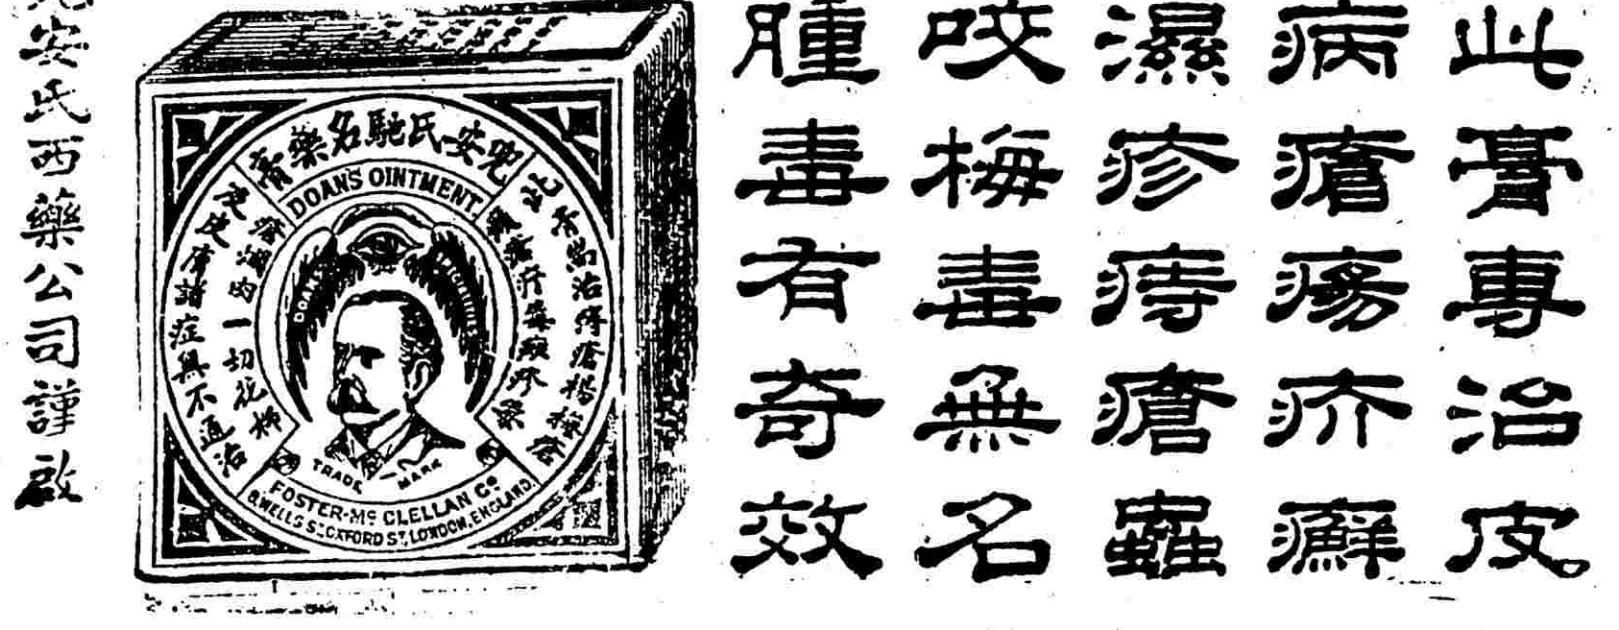 此膏專治皮
病瘡瘍疥癬
濕疹痔瘡蟲
咬梅毒無名
腫毒有奇效
兜安氏馳名藥膏
DOAN'S OINTMENT.
治痔瘡楊梅瘡
一切花柳
皮膚諸症無不通治
DOAN'S
TRADE MARK
FOSTER-Mc CLELLAN Co
8, WELLS ST, OXFORD ST, LONDON, ENGLAND.
兜安氏西藥公司謹啟